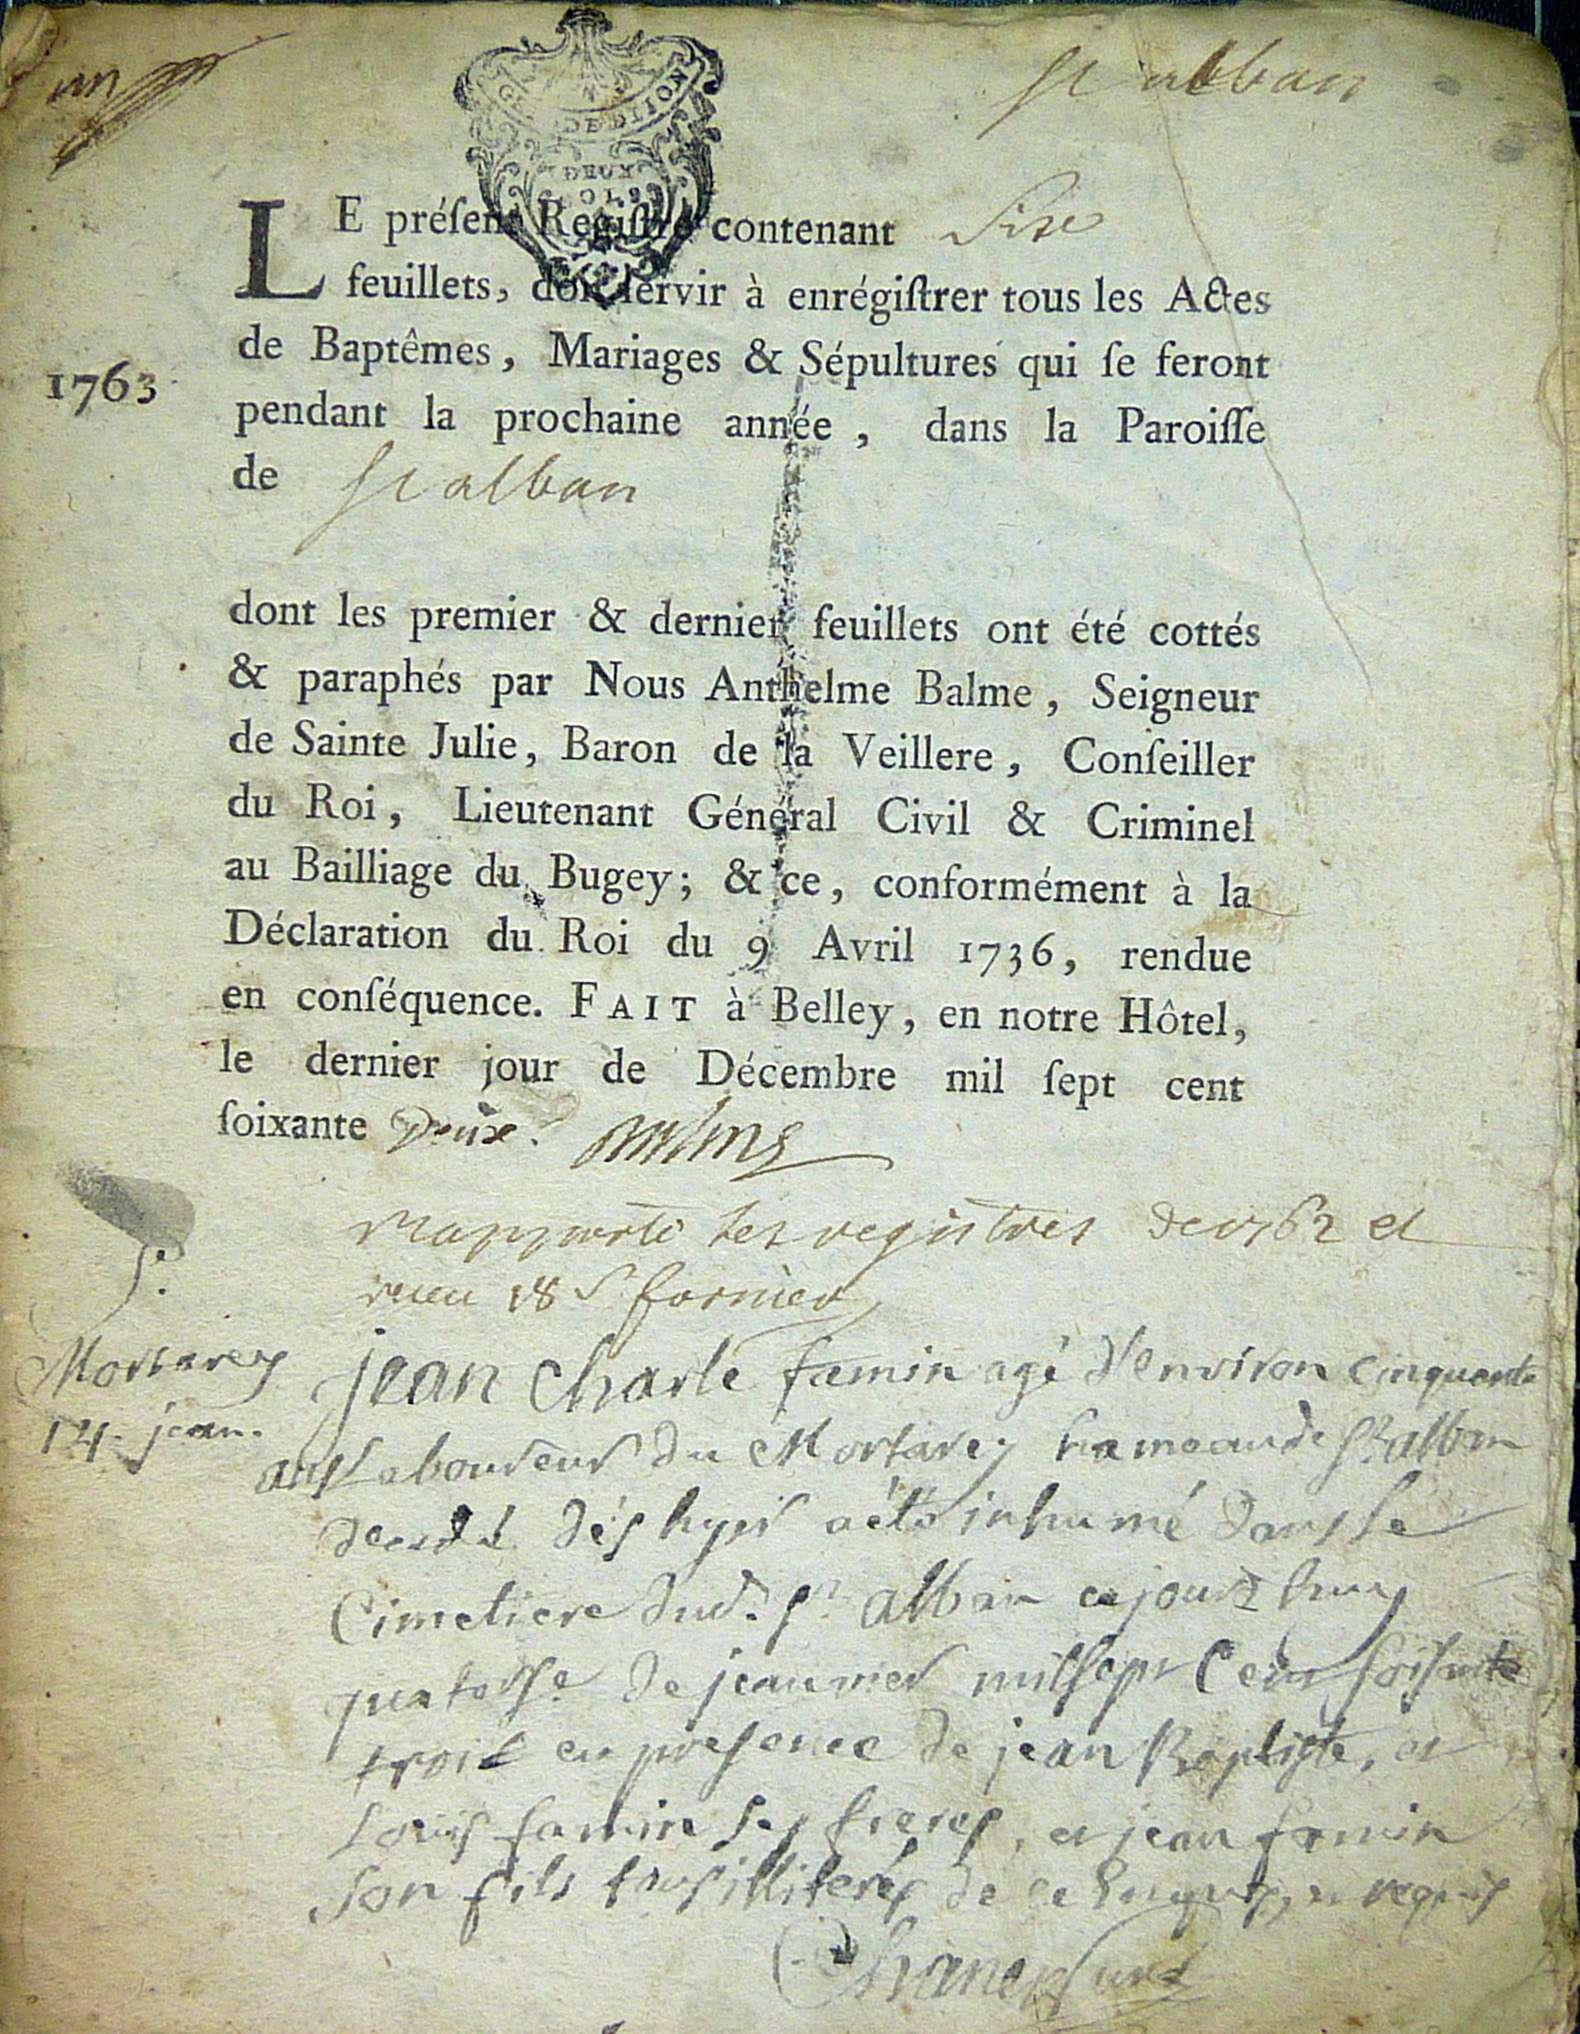 un
St alban
GE DE DIJON
DEUX
SOLS
LE préſent Regiſtre contenant Sixe
feuillets, doit ſervir à enrégiſtrer tous les Actes
de Baptêmes, Mariages & Sépultures qui ſe feront
1763
pendant la prochaine année, dans la Paroiſſe
de St alban
dont les premier & dernier feuillets ont été cottés
& paraphés par Nous Anthelme Balme, Seigneur
de Sainte Julie, Baron de la Veillere, Conſeiller
du Roi, Lieutenant Général Civil & Criminel
au Bailliage du Bugey; & ce, conformément à la
Déclaration du Roi du 9 Avril 1736, rendue
en conſéquence. FAIT à Belley, en notre Hôtel,
le dernier jour de Décembre mil ſept cent
ſoixante Deux. Balme
rapporté les registres de 1762 et
18 s fornier
S.
Mortarey
14. jean.
jean Charle famin agé d'environ cinquante
ans laboureur du Mortarey hameau de St alban
decedé dés hyer a été inhumé dans le
Cimetiere dud. St alban ce jourd huy
quatorse de jeanvier mil sept Cent soisante
trois en presence de jean Baptiste, et
Louis famin ses freres, et jean famin
son fils tous illiterés de ce enquis, et requis
Chanel curé